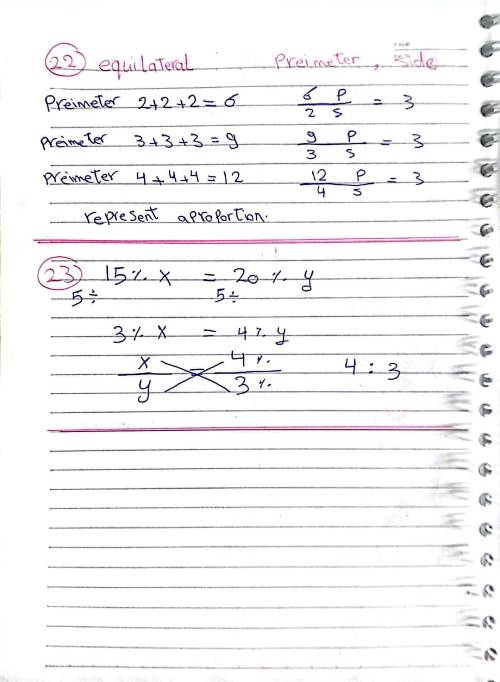 22 equilateral Preimeter, Side
Preimeter 2+2+2=6 6/2 P/S = 3
Preimeter 3+3+3=9 9/3 P/S = 3
Preimeter 4+4+4=12 12/4 P/S = 3
represent a proportion.
23 15% x = 20% y
5÷ 5÷
3% x = 4% y
x/y = 4%/3% 4 : 3